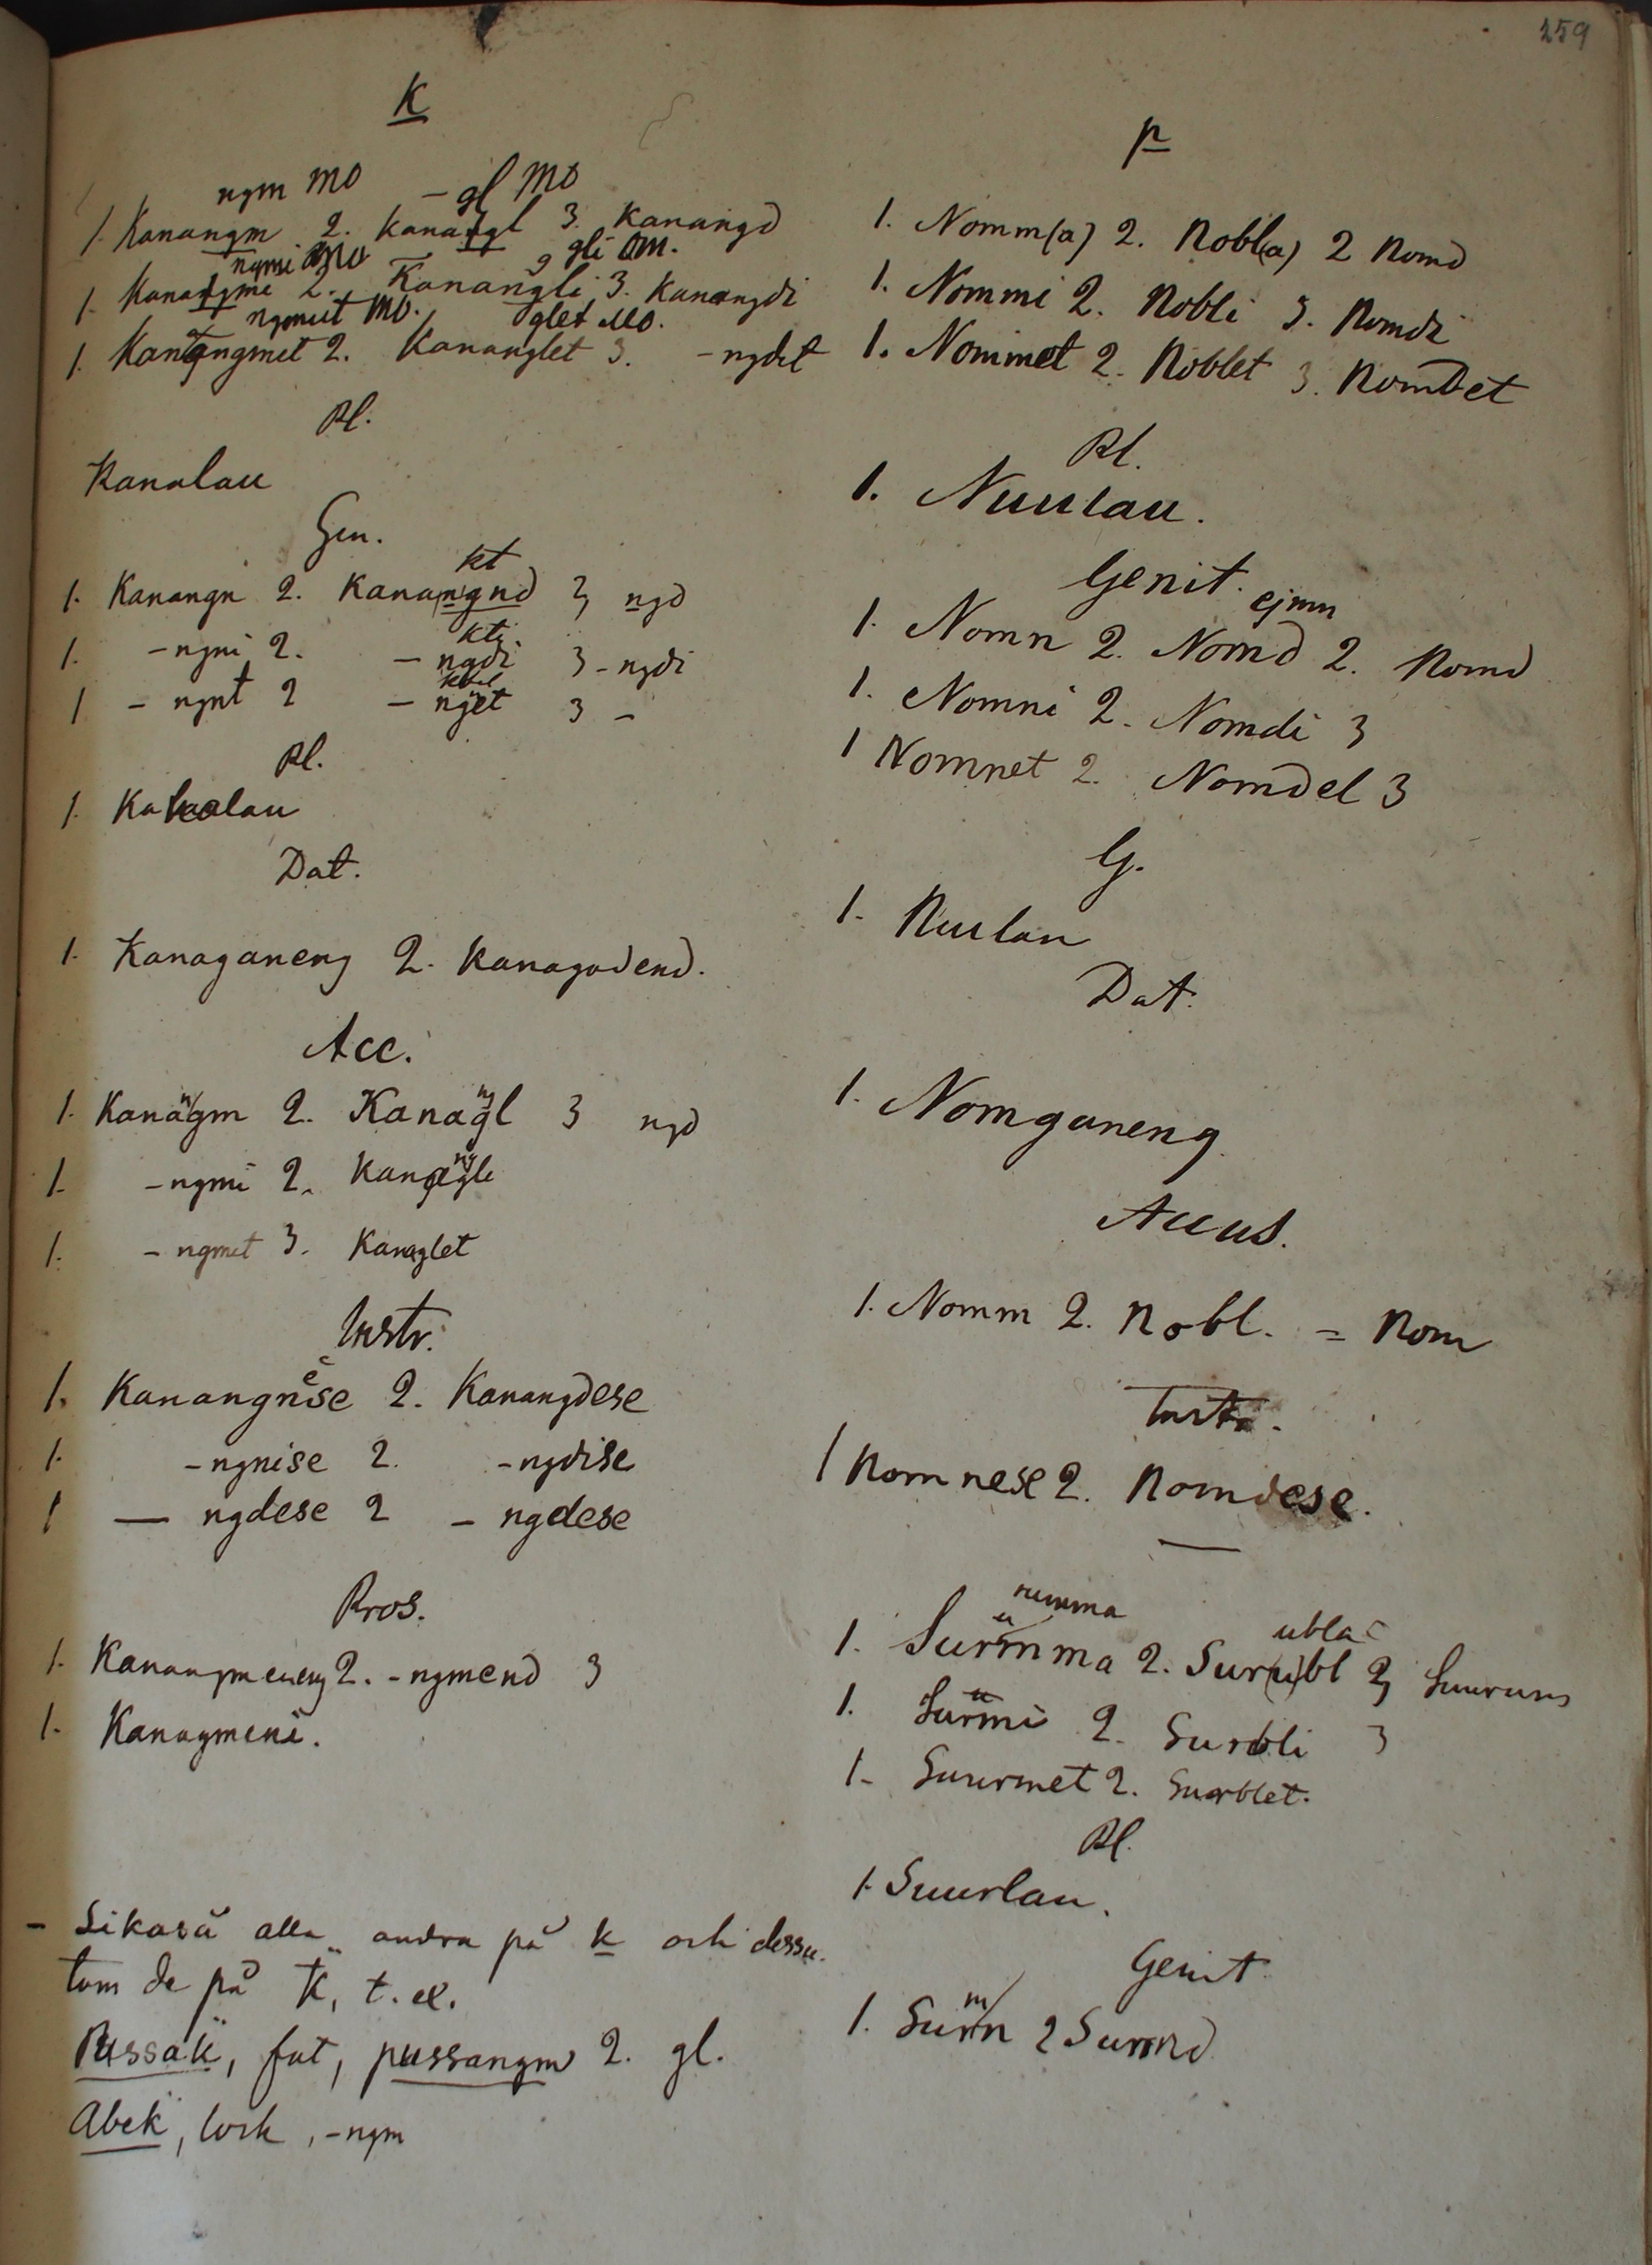 259
K
ngm MO - gl MO
1. Kanangm 2. Kanangl 3. Kanangd
ngmi MO gli OM.
1. Kanangmi 2. Kanangli 3. Kanangdi
ngmet MO. glet MO.
1. Kanangmet 2. Kananglet 3. -ngdet
Pl.
Kanalau
Gen.
kt
1. Kanangn 2. Kanangnd 3 ngd
ktj.
1. -ngni 2. - ngdi 3 - ngdi
1 - ngnt 2 - njet 3 -
Pl.
1. Kanalau
Dat.
1. Kanaganeng 2. Kanagadend.
Acc.
1. Kanangm 2. Kanangl 3 ngd
1. -ngmi 2. Kanangli
1. - ngmet 3. Kanaglet
Instr.
1. Kanangnese 2. Kanangdese
1. -ngnise 2. -ngdise
1 — ngdese 2 - ngdese
Pros.
1. Kanangmeneng 2. -ngmend 3
1. Kanagmeni.
- Likaså alla andra på k och dessu-
tom de på k̈, t. ex.
Pussak̈, fat, pussangm 2. gl.
Abek̈, lock, -ngm
p
1. Nomm(a) 2. Nobl(a) 2 Nomd
1. Nommi 2. Nobli 3. Nomdi
1. Nommet 2. Noblet 3. Nomdet
Pl.
1. Nuulau.
Genit. ejmn
1. Nomn 2. Nomd 2. Nomd
1. Nomni 2. Nomdi 3
1 Nomnet 2. Nomdel 3
G.
1. Nuulau
Dat.
1. Nomganeng
Accus.
1. Nomm 2. Nobl. = Nom
Instr.
1 Nomnese 2. Nomdese.
numma
ubla
1. Surmma 2. Sur(u)bl 3
1. Surmi 2. Surbli 3
1. Suurmet 2. Surblet.
Pl.
1. Suurlau.
Genit.
1. Surmn 2 Surmd